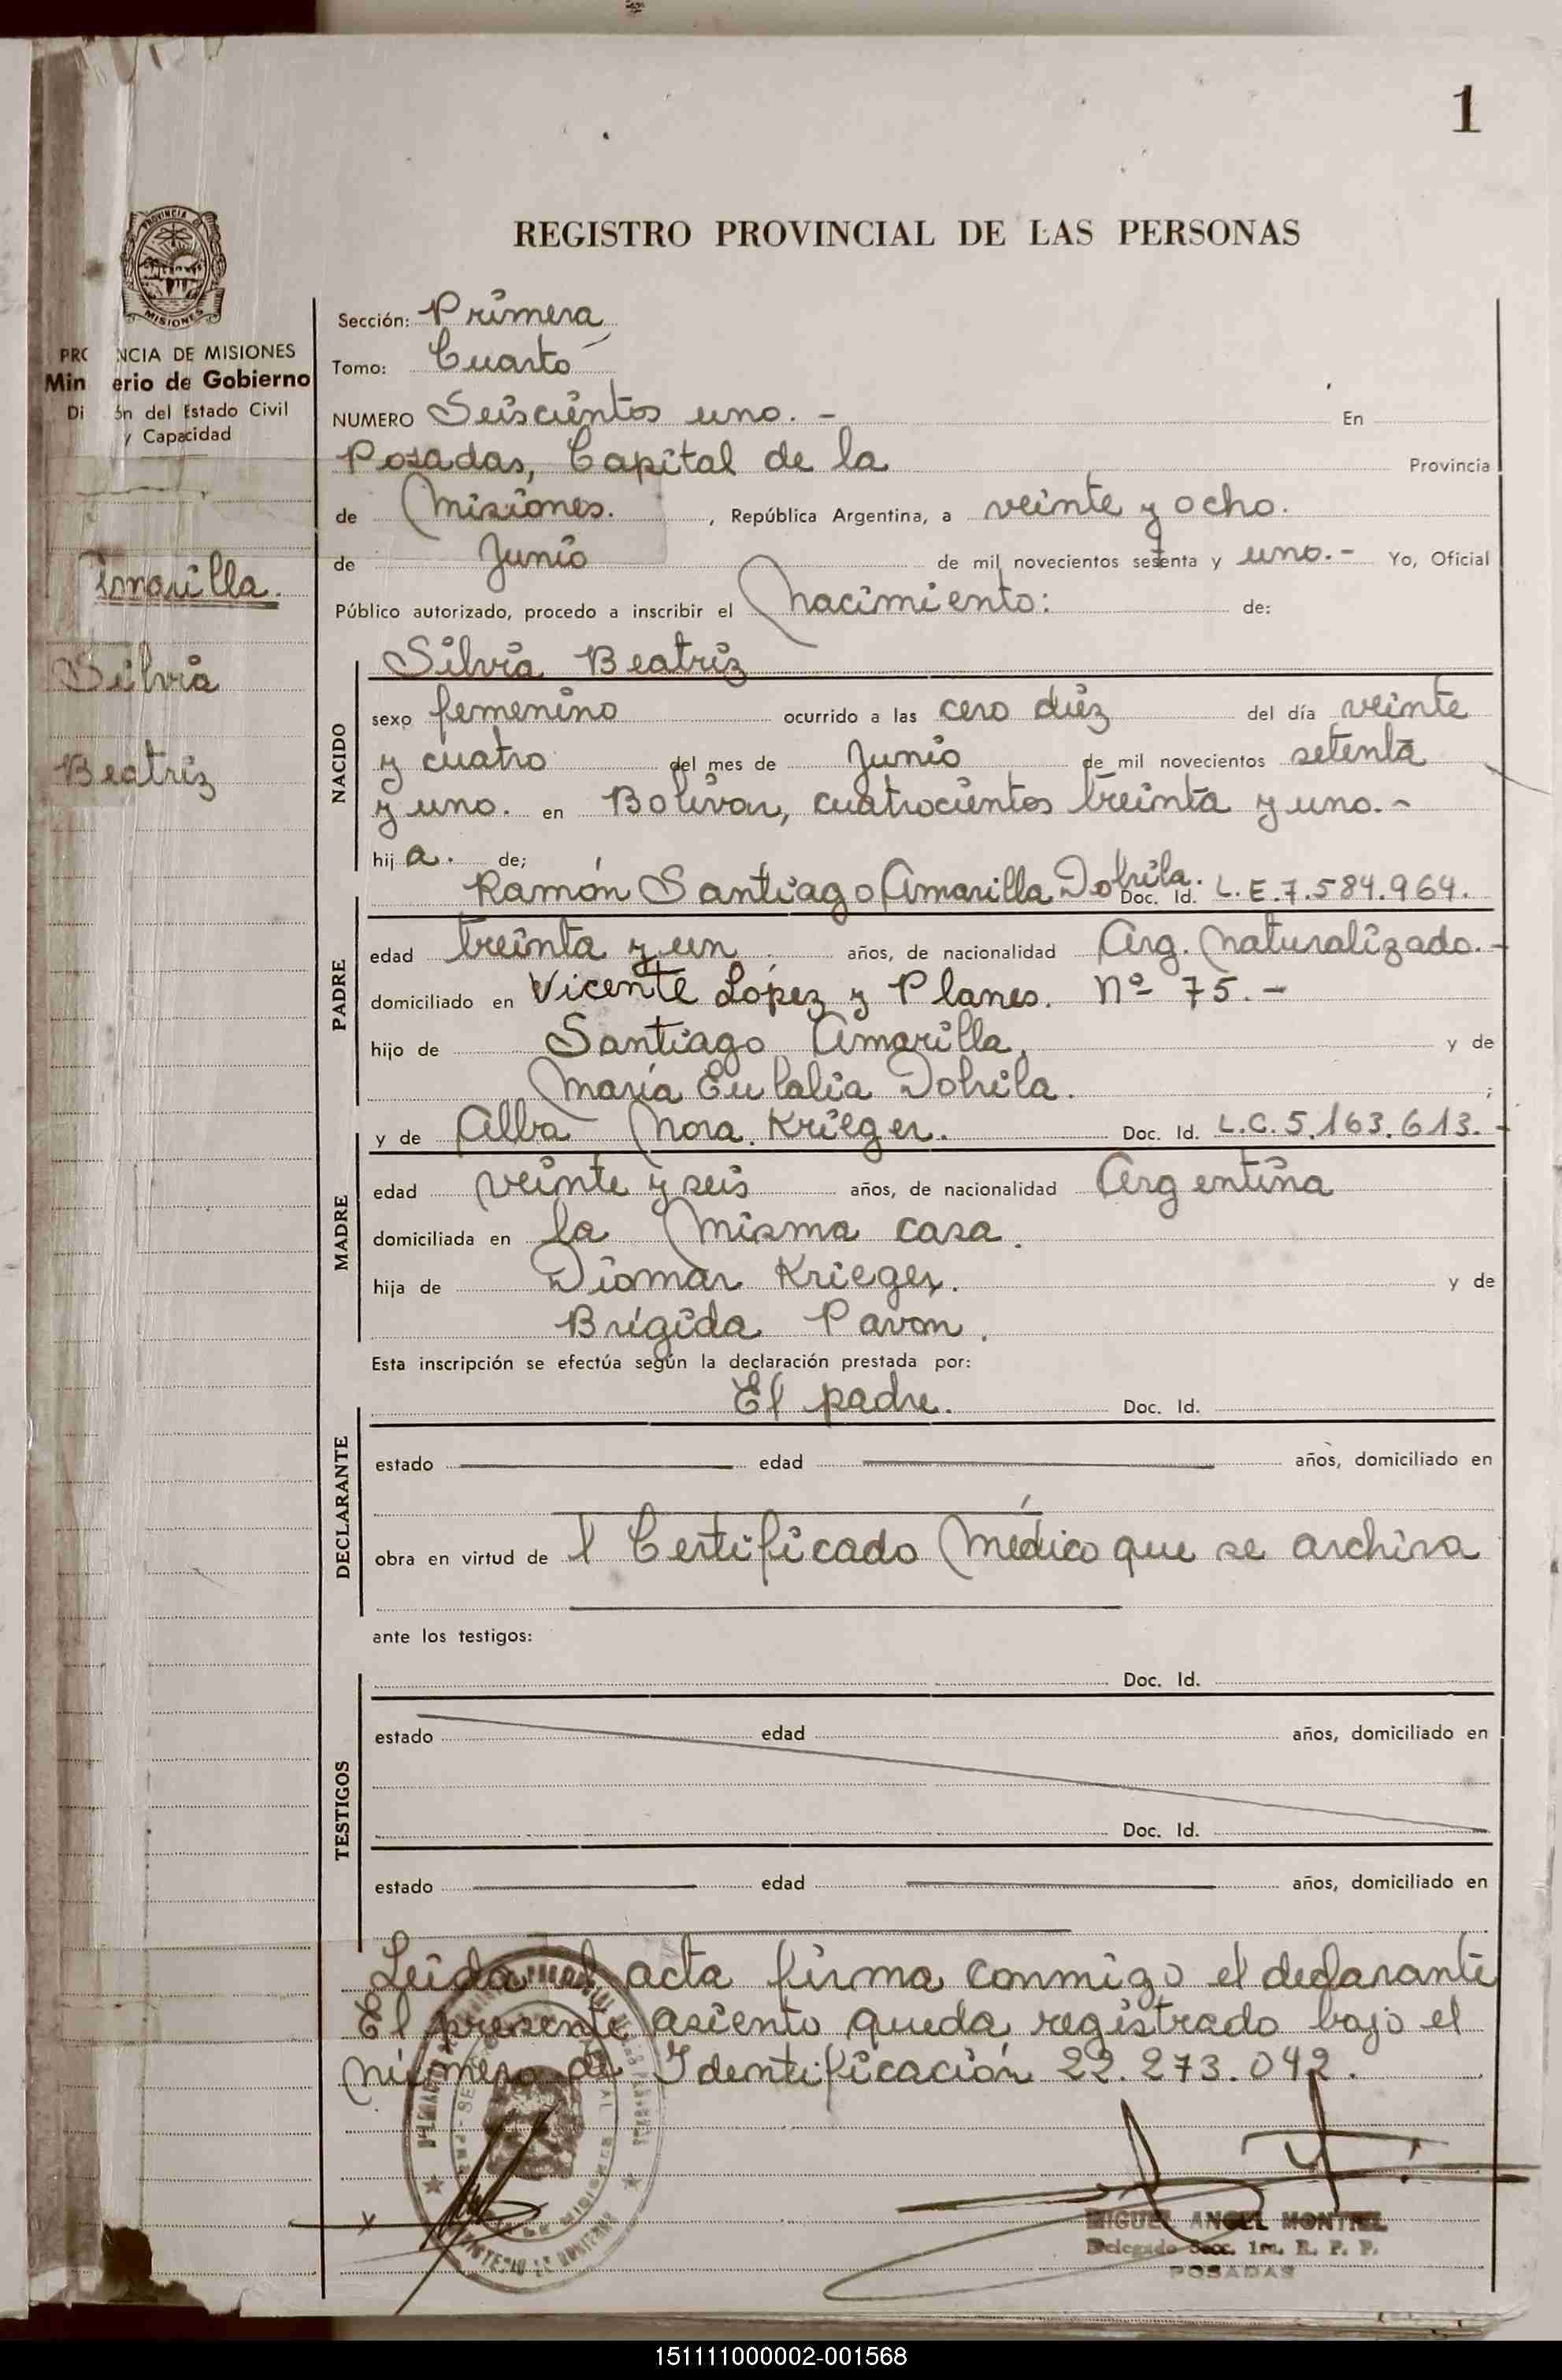 1
REGISTRO PROVINCIAL DE LAS PERSONAS
PROVINCIA DE
MISIONES
PRO NCIA DE MISIONES
Min erio de Gobierno
Di ón del Estado Civil
y Capacidad
Amarilla.
Silvia
Beatriz
Sección: Primera
Tomo: Cuarto
NUMERO Seiscientos uno. - En
Posadas, Capital de la Provincia
de Misiones. , República Argentina, a veinte y ocho.
de Junio de mil novecientos setenta y uno.- Yo, Oficial
Público autorizado, procedo a inscribir el Nacimiento: de:
Silvia Beatriz
NACIDO
sexo femenino ocurrido a las cero diez del día veinte
y cuatro del mes de Junio de mil novecientos setenta
y uno. en Bolívar, cuatrocientos treinta y uno.-
hij a. de;
Ramón Santiago Amarilla Dohila. Doc. Id. L.E.7.584.964.
PADRE
edad treinta y un años, de nacionalidad Arg. Naturalizado.-
domiciliado en Vicente López y Planes. Nº 75.-
hijo de Santiago Amarilla, y de
María Eulalia Dohila. ;
y de Alba Nora Krieger. Doc. Id. L.C.5.163.613.-
MADRE
edad veinte y seis años, de nacionalidad Argentina
domiciliada en la misma casa.
hija de Diomar Krieger. y de
Brígida Pavón.
Esta inscripción se efectúa según la declaración prestada por:
El padre. Doc. Id.
DECLARANTE
estado edad años, domiciliado en
obra en virtud de l Certificado Médico que se archiva
ante los testigos:
Doc. Id.
TESTIGOS
estado edad años, domiciliado en
Doc. Id.
estado edad años, domiciliado en
Leida el acta firma conmigo el declarante
El presente asiento queda registrado bajo el
número de Identificación 22.273.042.
MIGUEL ANGEL MONTIEL
Delegado Secc. 1ra. R. P. P.
POSADAS
151111000002-001568